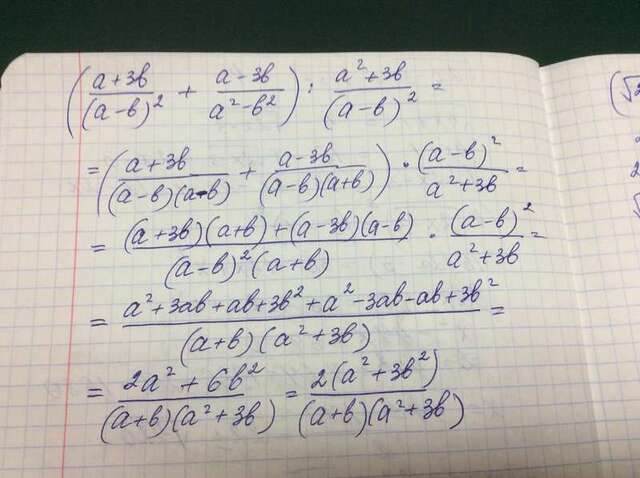 ((a+3b)/(a-b)² + (a-3b)/(a²-b²)) : (a²+3b)/(a-b)² =
= ((a+3b)/((a-b)(a-b)) + (a-3b)/((a-b)(a+b))) · (a-b)²/(a²+3b) =
= ((a+3b)(a+b)+(a-3b)(a-b))/((a-b)²(a+b)) · (a-b)²/(a²+3b) =
= (a²+3ab+ab+3b²+a²-3ab-ab+3b²)/((a+b)(a²+3b)) =
= (2a²+6b²)/((a+b)(a²+3b)) = 2(a²+3b²)/((a+b)(a²+3b))
(√2